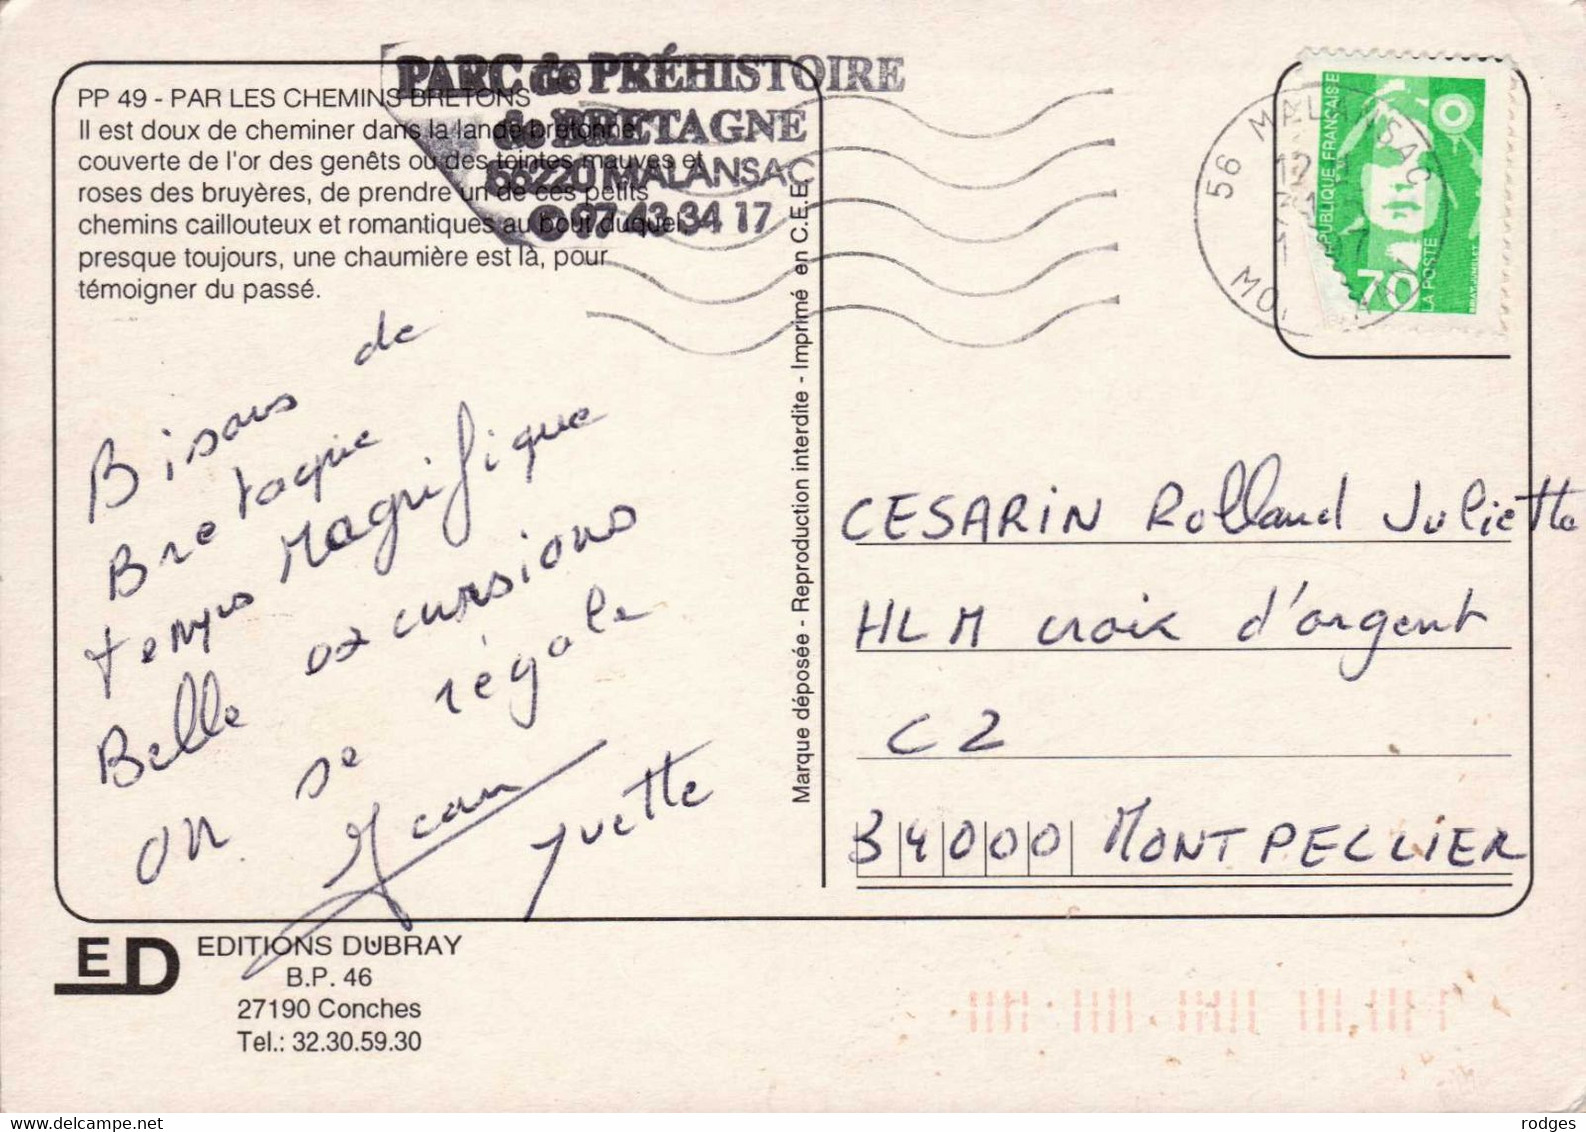 PARC de PRÉHISTOIRE
de BRETAGNE
56220 MALANSAC
97 43 34 17
PP 49 - PAR LES CHEMINS BRETONS
Il est doux de cheminer dans la lande bretonne,
couverte de l'or des genêts ou des teintes mauves et
roses des bruyères, de prendre un de ces petits
chemins caillouteux et romantiques au bout duquel
presque toujours, une chaumière est là, pour
témoigner du passé.
Bisous de
Bretagne
temps Magnifique
Belle excursions
on se régale
Jean Yvette
Marque déposée - Reproduction interdite - Imprimé en C.E.E.
56 MALANSAC
12
RÉPUBLIQUE FRANÇAISE
70
LA POSTE
CESARIN Rolland Juliette
HLM croix d'argent
C2
34000 MONTPELLIER
ED
EDITIONS DUBRAY
B.P. 46
27190 Conches
Tel.: 32.30.59.30
rodges
www.delcampe.net